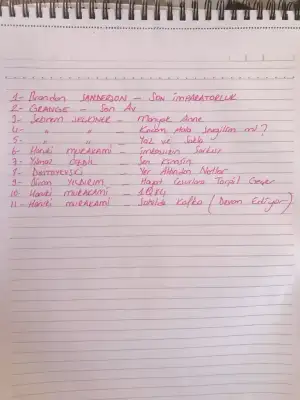 1- Brandon SANDERSON - SON İMPARATORLUK
2- GRANGE - Son Av
3- Sebnem SEÇKİNER - Manyak Anne
4- " " - Kadın Hala Sevgilim mi?
5- " " - Yaz ve Sakla
6- Haruki MURAKAMI - İmkansızın Şarkısı
7- Yılmaz Özdil - Sen Kimsin
8- DOSTOYEVSKİ - Yer Altından Notlar
9- YILDIRIM - Hayat Cesurlara Torpil Geçer
10- Haruki MURAKAMI - 1Q84
11- Haruki MURAKAMI - Sahilde Kafka (Devam Ediyor)